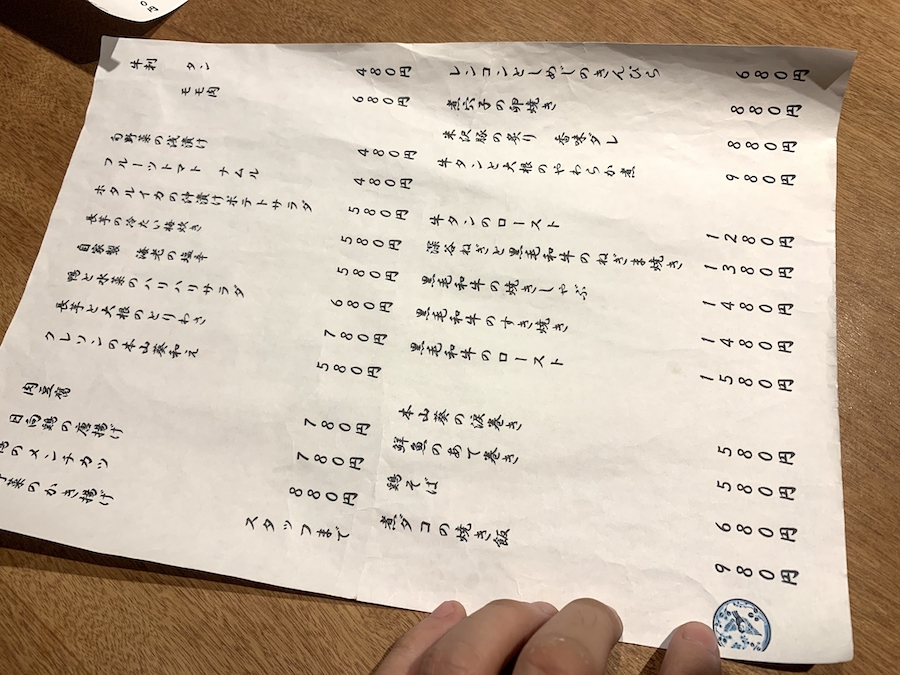 牛刺 タン 480円
モモ肉 680円
旬野菜の浅漬け 480円
フルーツトマト ナムル 480円
ホタルイカの沖漬けポテトサラダ 580円
長芋の冷たい梅炊き 580円
自家製 海老の塩辛 580円
鴨と水菜のハリハリサラダ 680円
長芋と大根のとりわさ 780円
クレソンの本山葵和え 580円
肉豆腐 780円
日向鶏の唐揚げ 780円
のメンチカツ 880円
菜のかき揚げ
スタッフまで
レンコンとしめじのきんぴら 680円
煮穴子の卵焼き 880円
米沢豚の炙り 香味ダレ 880円
牛タンと大根のやわらか煮 980円
牛タンのロースト 1280円
深谷ねぎと黒毛和牛のねぎま焼き 1380円
黒毛和牛の焼きしゃぶ 1480円
黒毛和牛のすき焼き 1480円
黒毛和牛のロースト 1580円
本山葵の涙巻き 580円
鮮魚のあて巻き 580円
鶏そば 680円
煮ダコの焼き飯 980円
0円